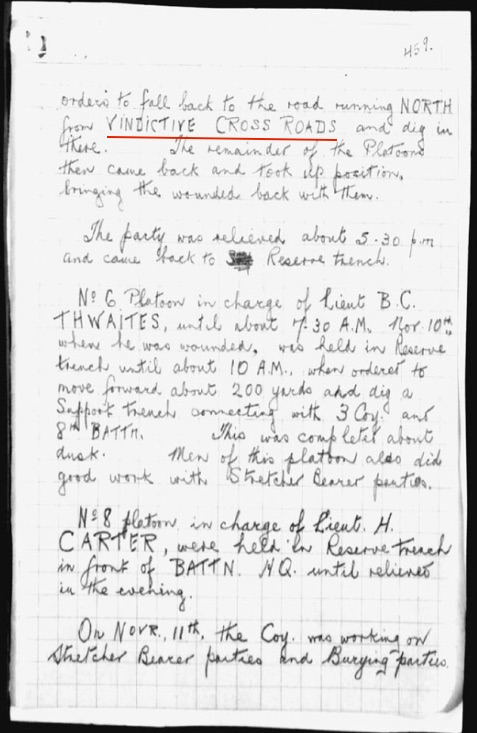 459.
orders to fall back to the road running NORTH
from VINDICTIVE CROSS ROADS and dig in
there. The remainder of the Platoons
then came back and took up position,
bringing the wounded back with them.
The party was relieved about 5.30 p.m
and came back to Reserve trench.
No 6 Platoon in charge of Lieut B.C.
THWAITES, until about 7.30 A.M. Nov 10th
when he was wounded, was held in Reserve
trench until about 10 A.M., when ordered to
move forward about 200 yards and dig a
Support trench connecting with 3 Coy. and
8th BATTN. This was completed about
dusk. Men of this platoon also did
good work with Stretcher Bearer parties.
No 8 platoon, in charge of Lieut. H.
CARTER, were held in Reserve trench
in front of BATTN. HQ. until relieved
in the evening.
On NOVR., 11th, the Coy. was working on
Stretcher Bearer parties and Burying parties.